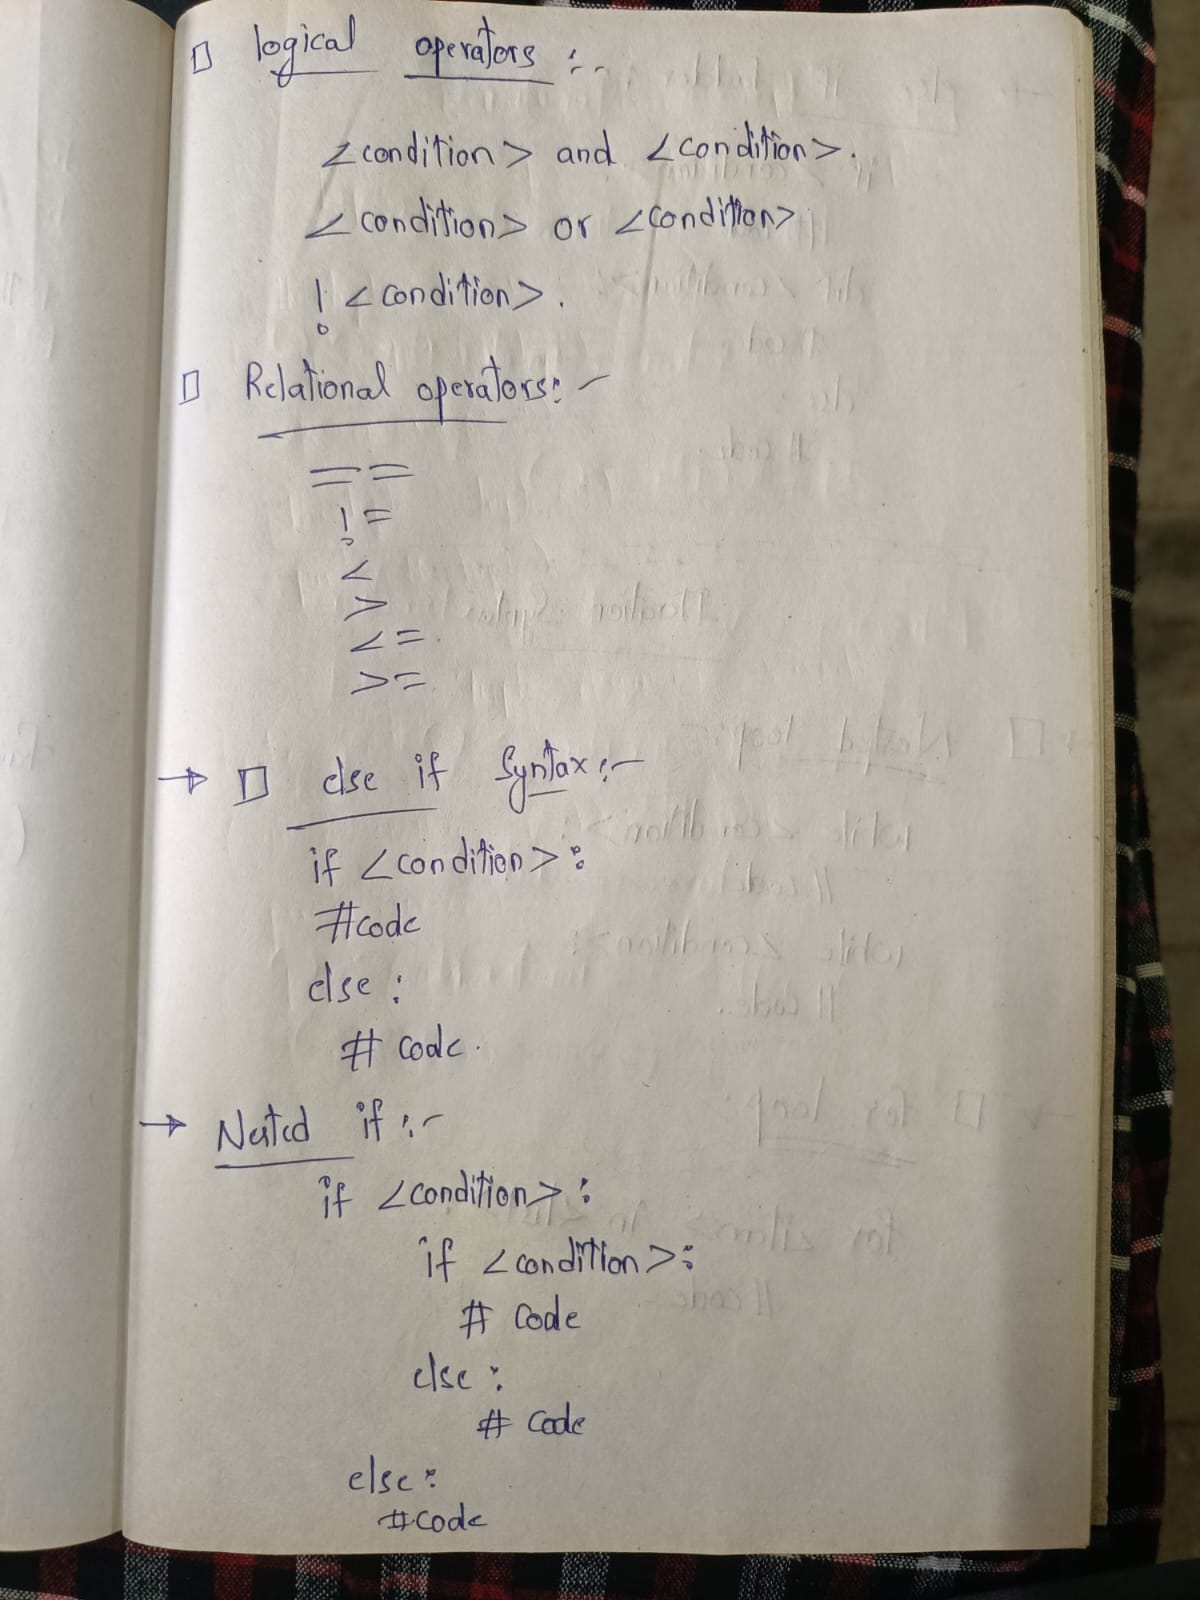 logical operators :-
<condition> and <condition>.
<condition> or <condition>
! <condition>.
Relational operators:-
==
!=
<
>
<=
>=
→ else if Syntax:-
if <condition>:
#code
else:
# code.
→ Nested if:-
if <condition>:
if <condition>:
# code
else:
# code
else:
#code